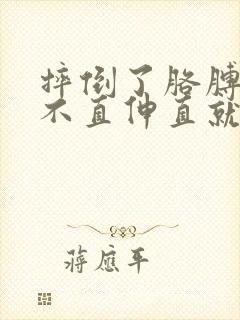 摔倒了胳膊
不直伸直就
蒋应平